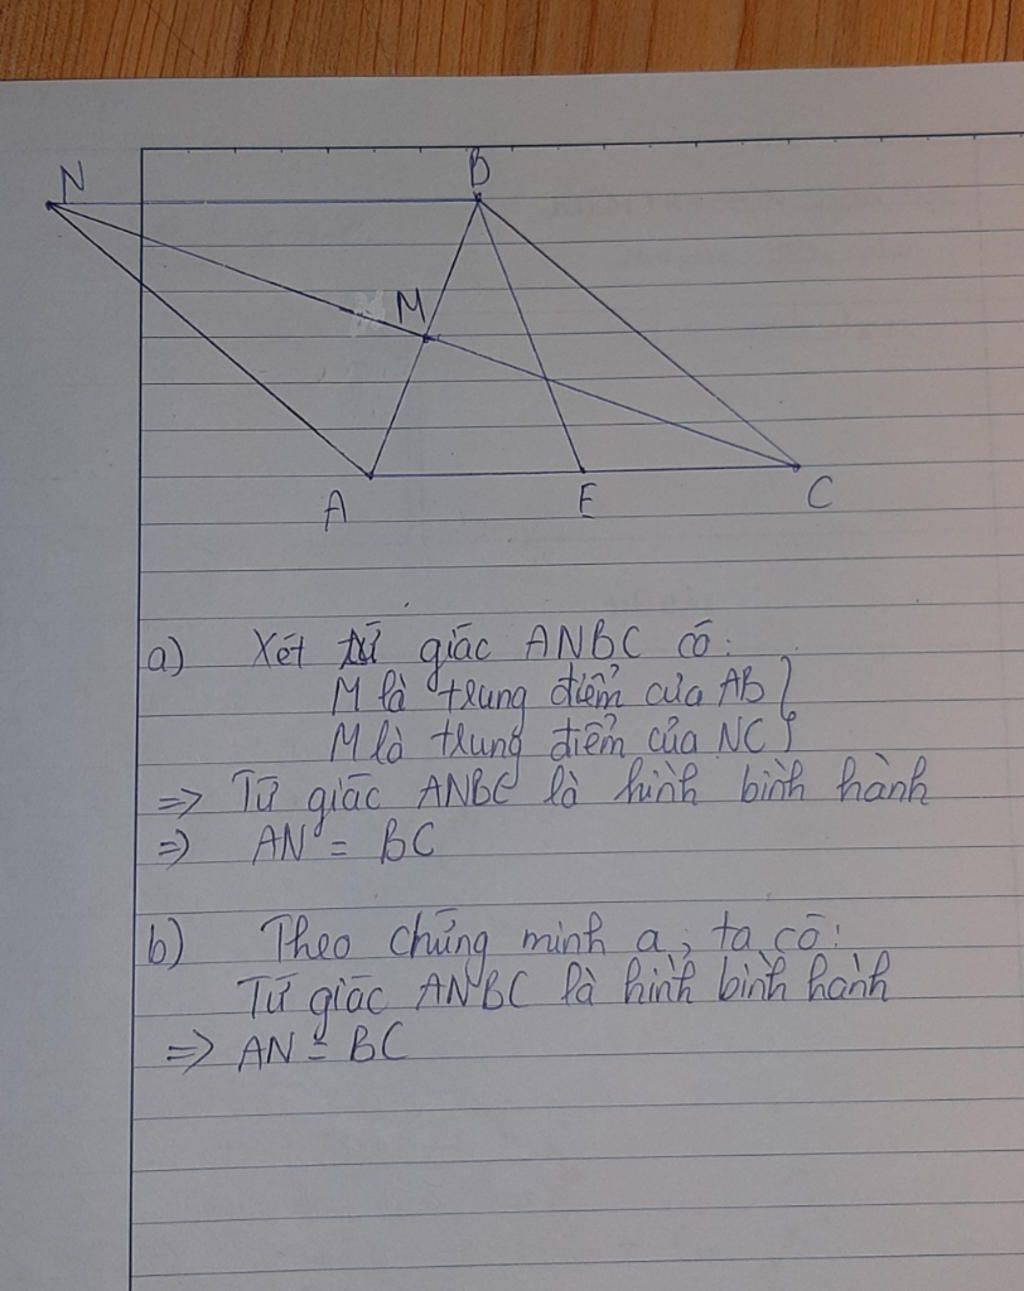 N
B
M
A
E
C
a) Xét tứ giác ANBC có:
M là trung điểm của AB }
M là trung điểm của NC }
=> Tứ giác ANBC là hình bình hành
=> AN = BC
b) Theo chứng minh a, ta có:
Tứ giác ANBC là hình bình hành
=> AN = BC